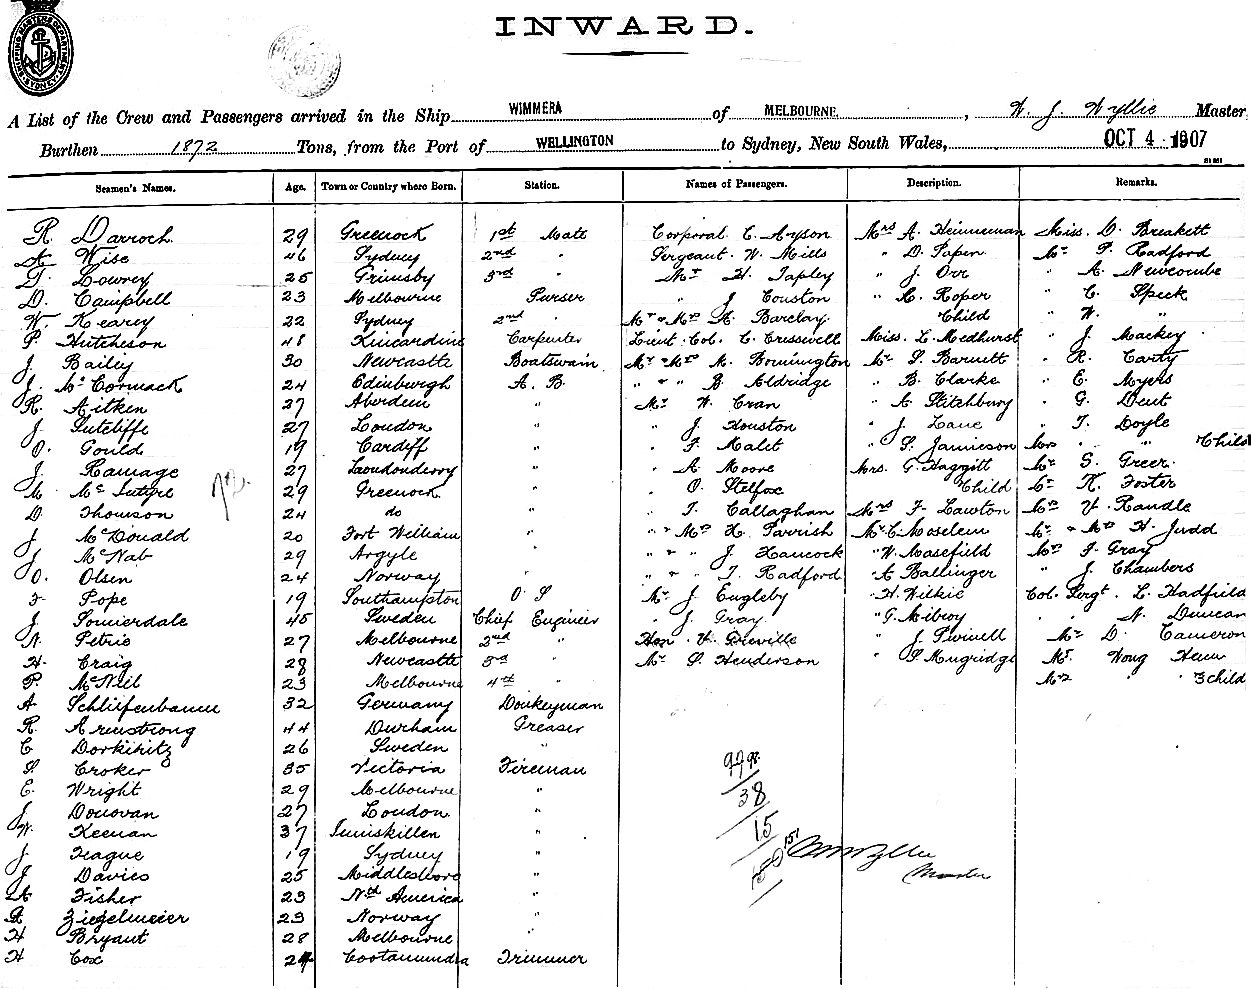 SHIPPING MASTER'S DEPARTMENT SYDNEY
INWARD.
A List of the Crew and Passengers arrived in the Ship WIMMERA of MELBOURNE, W. J. Wyllie Master
Burthen 1872 Tons, from the Port of WELLINGTON to Sydney, New South Wales, OCT 4 1907
Seamen's Names. Age. Town or Country where Born. Station. Names of Passengers. Description. Remarks.
R. Darroch 29 Greenock 1st Mate Corporal C. Ayson Mrs A. Heinneman Miss. D. Breakett
A. Wise 46 Sydney 2nd " Sergeant W. Mills " D. Papen Mr F. Radford
T. Lowrey 25 Grimsby 3rd " Mr H. Tapley " J. Orr " A. Newcombe
D. Campbell 23 Melbourne Purser " J Couston " C. Roper " C. Speck
W. Kearey 22 Sydney 2nd " Mr & Mrs A. Barclay Child " W. "
P. Hutcheson 48 Kincardine Carpenter Lieut. Col. C. Cresswell Miss. L. Medhurst " J. Mackey
J. Bailey 30 Newcastle Boatswain Mr & Mrs A. Bonnington Mr S. Barnett " R. Carty
J. McCormack 24 Edinburgh A. B. " " " B. Aldridge " B. Clarke " E. Myers
R. Aitken 27 Aberdeen " Mr W. Cran " A. Stitchbury " G. Dent
J Sutcliffe 27 London " " J. Houston " J. Lane " T. Doyle
O. Gould 19 Cardiff " " F. Malet " S. Jamieson Mrs " " Child
J. Ramage 27 Londonderry " " A. Moore Mrs. G. Haggitt Mr S. Greer
M. McIntyre 29 Greenock " " O. Stelfox Child Mr K. Foster
D Thomson 24 do " " T. Callaghan Mrs F. Lawton Mrs V. Randle
J McDonald 20 Fort William " " & Mrs H. Parrish Mr C. Moselen Mr & Mrs H. Judd
J McNab 29 Argyle " " " " J. Hancock " W. Masefield Mrs J. Gray
O. Olsen 24 Norway " " " " T. Radford " A Ballinger " J. Chambers
F Pope 19 Southampton O. S Mr J Eagleby " H. Wilkie Col. Sergt. L. Hadfield
J. Sonnerdale 45 Sweden Chief Engineer " J. Gray " G. Milroy " " N. Duncan
N. Petrie 27 Melbourne 2nd " Hon V. Greville " J. Powell Mr D. Cameron
H. Craig 28 Newcastle 3rd " Mr S. Henderson " S. Mugridge Mr. Wong
P. McNeil 23 Melbourne 4th " Mrs " 3 child
A Schliefenbaum 32 Germany Donkeyman
R. Armstrong 44 Durham Greaser
C 26 Sweden "
S. Croker 35 Victoria Fireman
E. Wright 29 Melbourne "
J. Donovan 27 London "
W. Keenan 37 Inniskillen "
J. Teague 19 Sydney "
J Davies 25 Middlesboro "
A Fisher 23 Nth America "
A Ziegelmeier 23 Norway "
H Bryant 28 Melbourne "
H Cox 24 Cootamundra Trimmer
99
38
15
151
Wyllie
Master